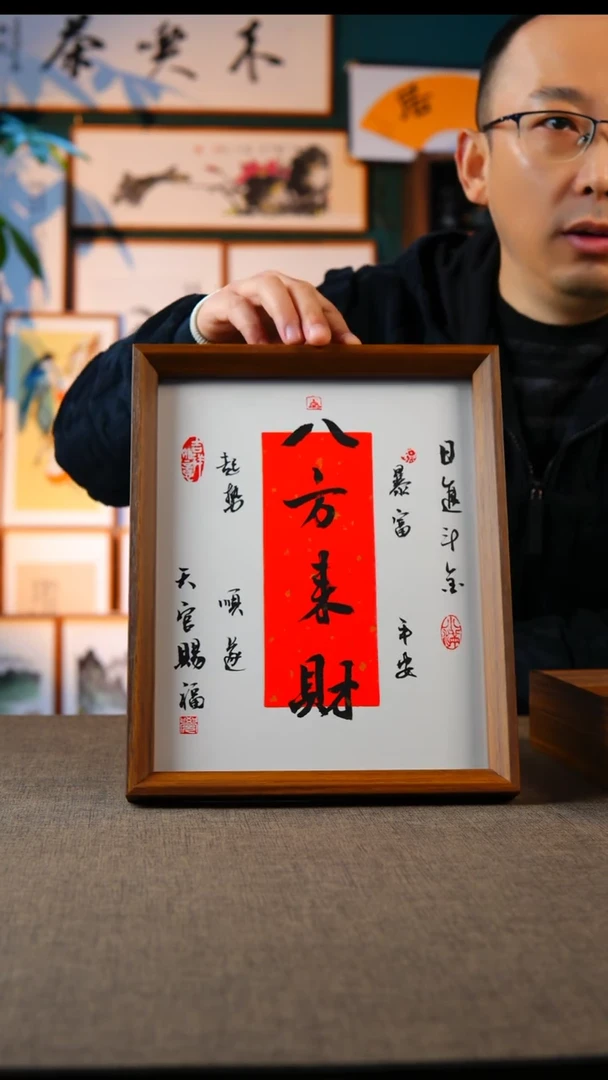 日進斗金
暴富
平安
八方来財
起勢
順遂
天官賜福